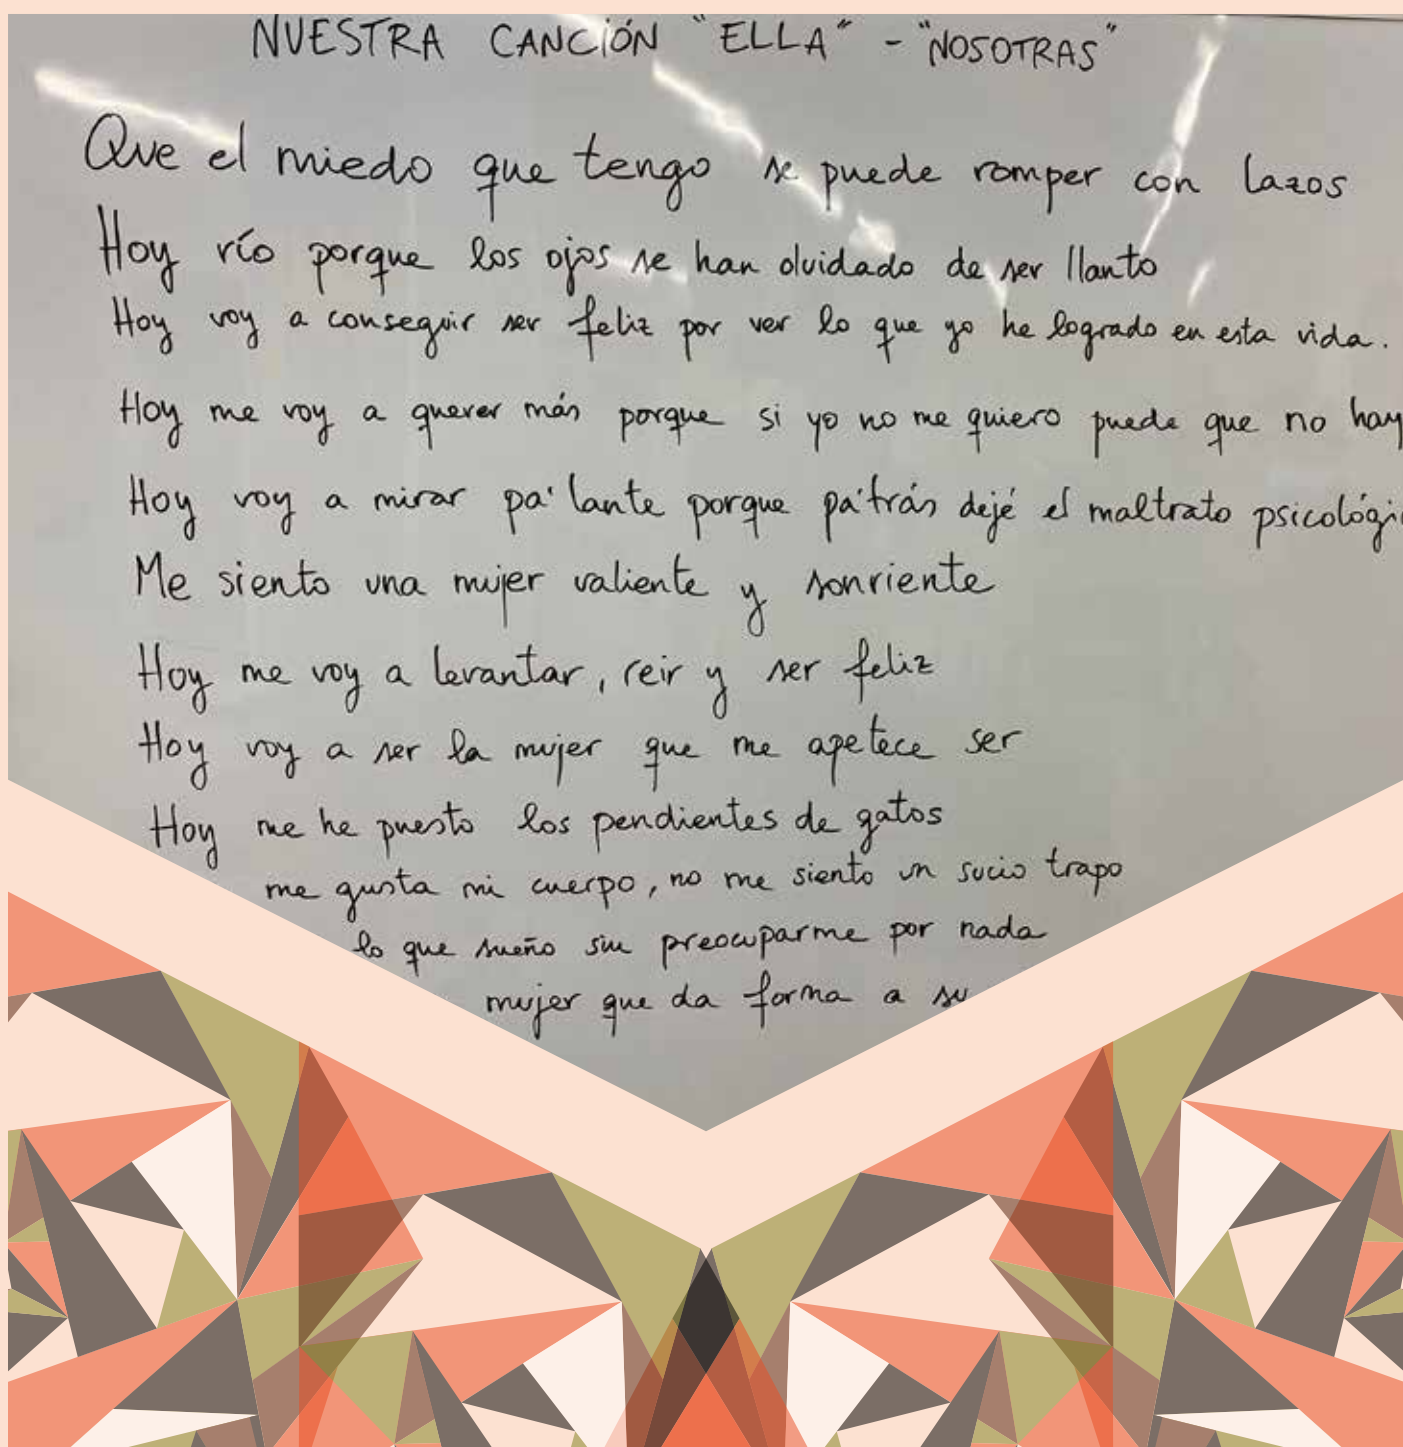 NUESTRA CANCIÓN "ELLA" - "NOSOTRAS"
Que el miedo que tengo se puede romper con lazos
Hoy río porque los ojos se han olvidado de ser llanto
Hoy voy a conseguir ser feliz por ver lo que yo he logrado en esta vida.
Hoy me voy a querer más porque si yo no me quiero puede que no hay
Hoy voy a mirar pa'lante porque pa'trás dejé el maltrato psicológi
Me siento una mujer valiente y sonriente
Hoy me voy a levantar, reir y ser feliz
Hoy voy a ser la mujer que me apetece ser
Hoy me he puesto los pendientes de gatos
me gusta mi cuerpo, no me siento un sucio trapo
lo que sueño sin preocuparme por nada
mujer que da forma a su